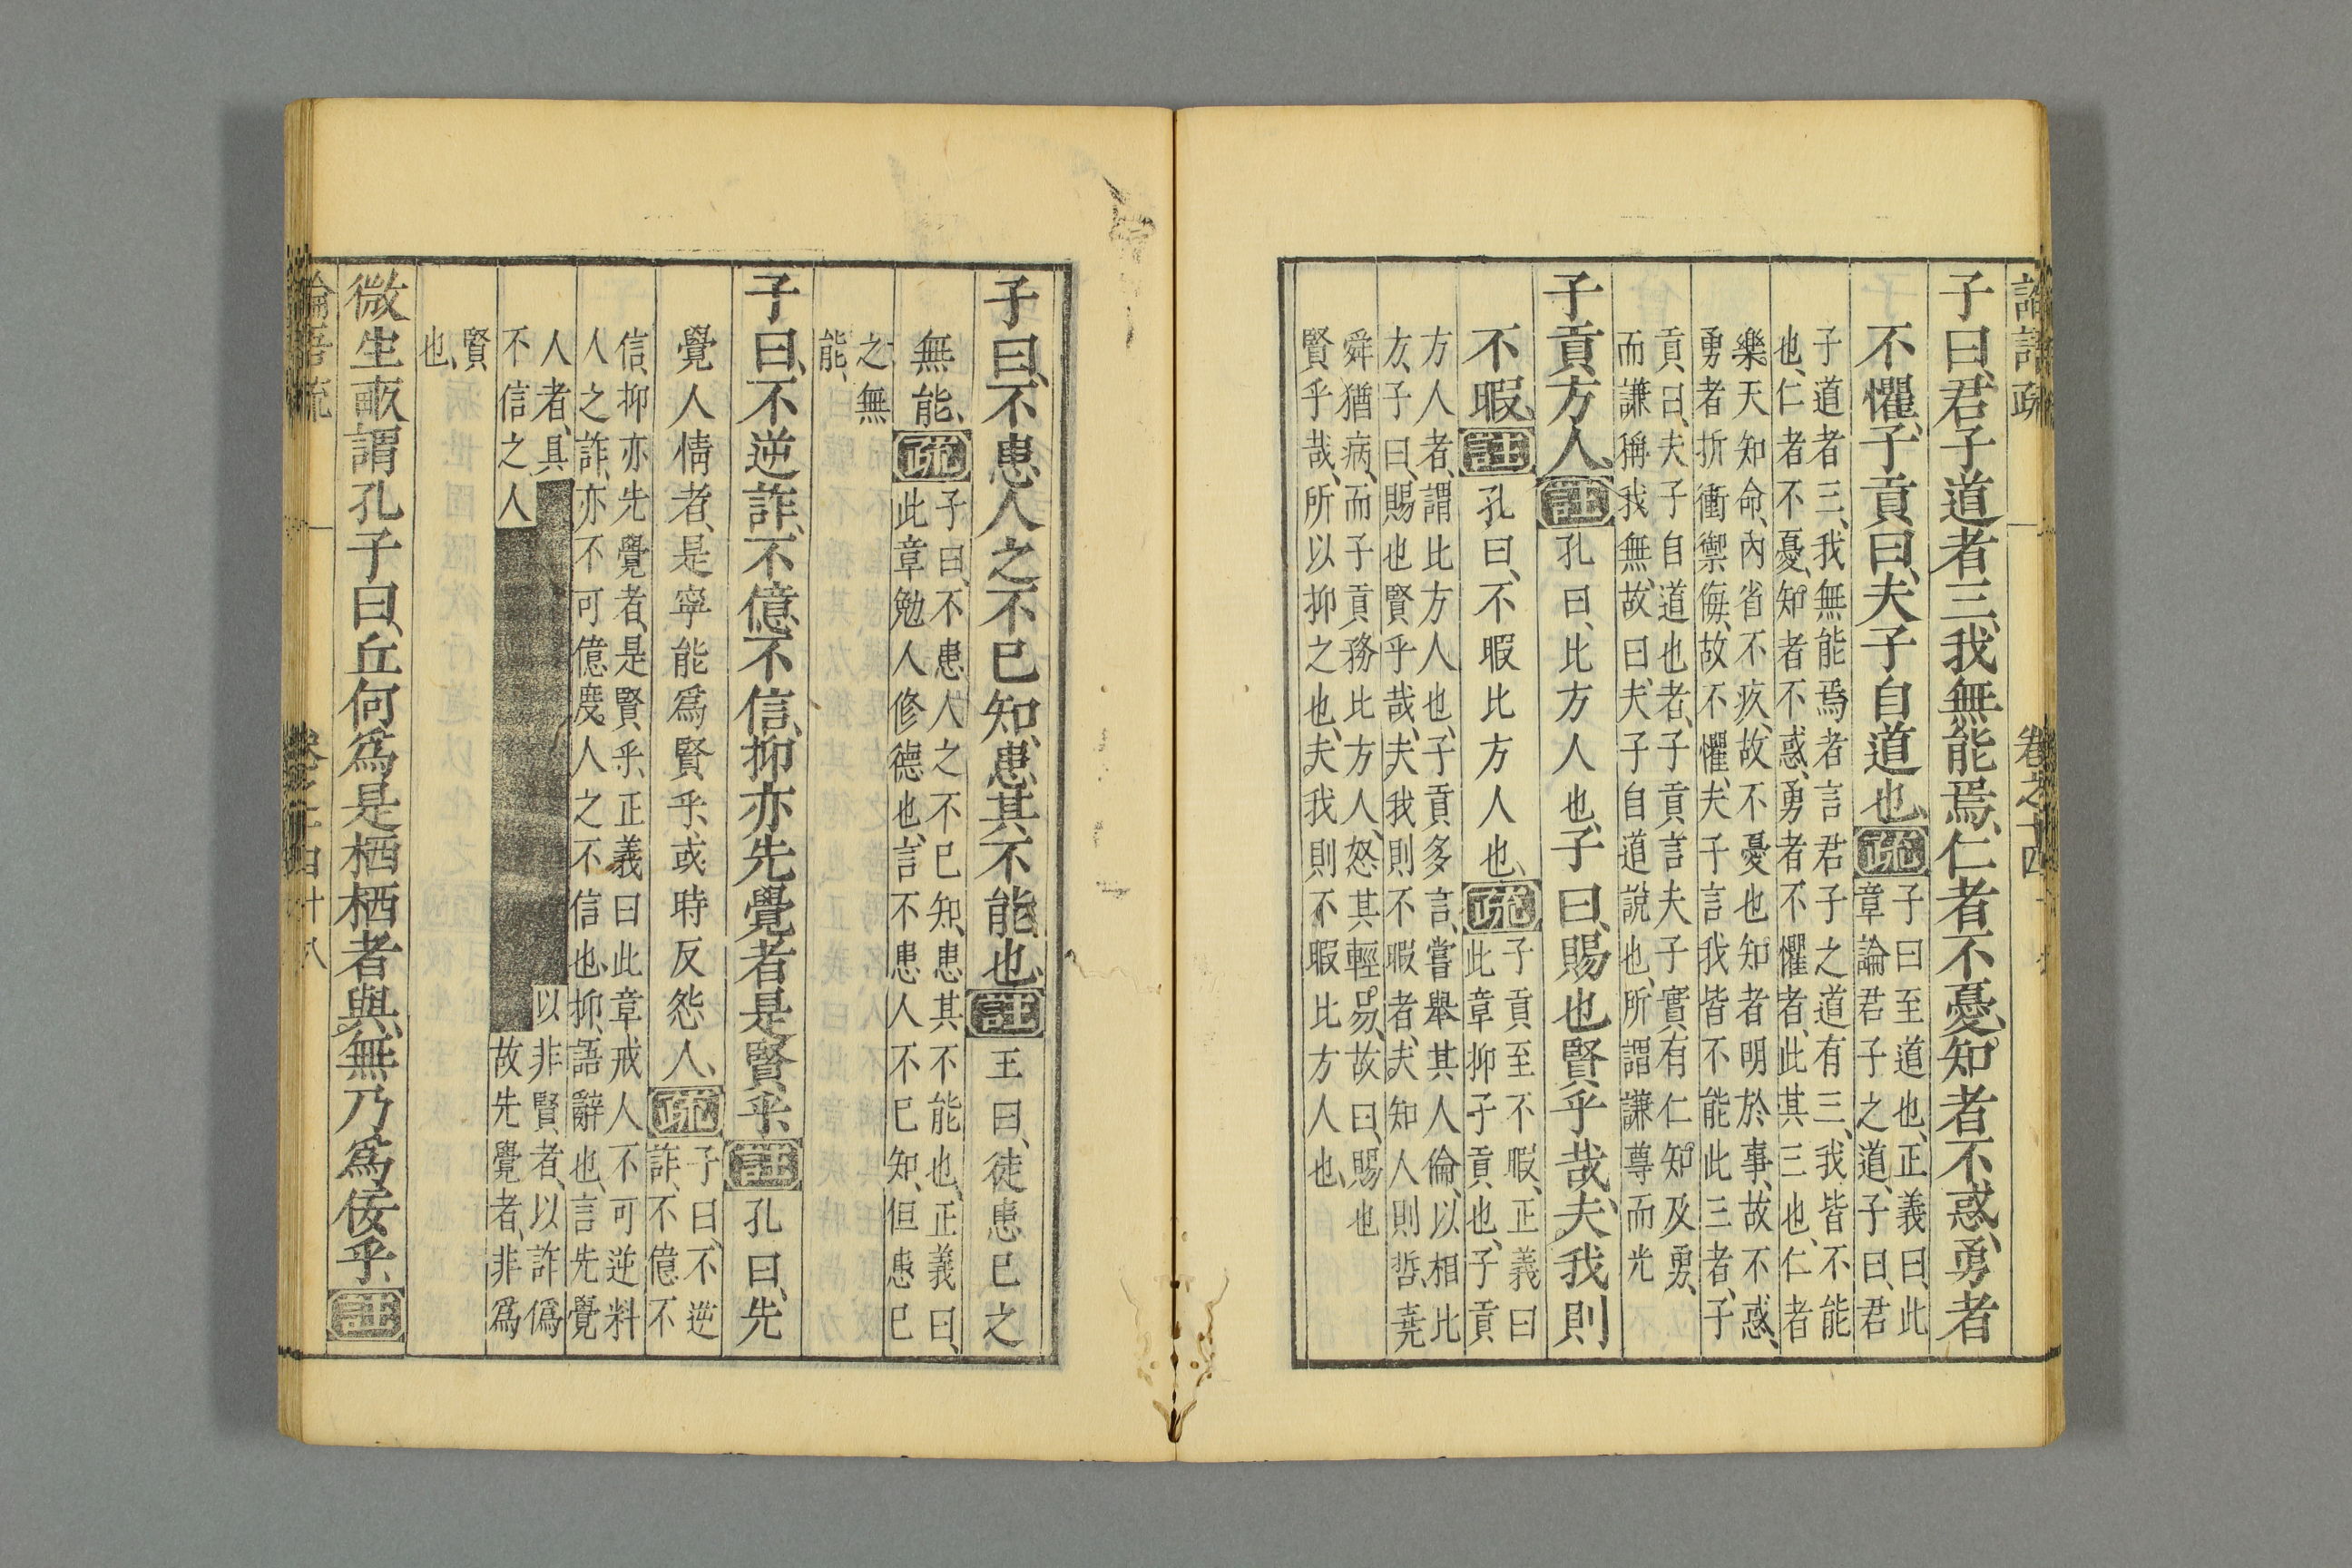 子曰、君子道者三、我無能焉、仁者不憂、知者不惑、勇者
不懼、子貢曰、夫子自道也、疏子曰至道也、正義曰、此
章論君子之道、子曰、君
子道者三、我無能焉者言君子之道有三、我皆不能
也、仁者不憂、知者不惑、勇者不懼者、此其三也、仁者
樂天知命、內省不疚、故不憂也知者明於事、故不惑、
勇者折衝禦侮、故不懼、夫子言我皆不能此三者、子
貢、曰、夫子自道也者、子貢言夫子實有仁知及勇、
而謙稱我無、故曰、夫子自道說也、所謂謙尊而光
子貢方人、註孔曰、比方人也、子曰、賜也賢乎哉、夫、我則
不暇、註孔曰、不暇比方人也、疏子貢至不暇、正義曰
此章抑子貢也、子貢
方人者、謂比方人也、子貢多言、嘗舉其人倫、以相比
方、子曰、賜也賢乎哉、夫我則不暇者、夫知人則哲、堯
舜猶病、而子貢務比方人、怒其輕易、故曰、賜也
賢乎哉、所以抑之也、夫我則不暇比方人也、
子曰、不患人之不已知、患其不能也、註王曰、徒患已之
無能、疏子曰、不患人之不已知、患其不能也、正義曰、
此章勉人修德也、言不患人不已知、但患已
之無
能、
子曰、不逆詐、不億、不信、抑亦先覺者是賢乎、註孔曰、先
覺人情者、是寧能爲賢乎、或時反怨人、疏子曰、不逆
詐、不億不
信、抑亦先覺者、是賢乎、正義曰此章戒人不可逆料
人之詐、亦不可億度人之不信也、抑、語辭也、言先覺
人者、具以非賢者、以詐僞
不信之人故先覺者、非爲
賢
也、
微生畝謂孔子曰、丘何爲是栖栖者與、無乃爲佞乎、註